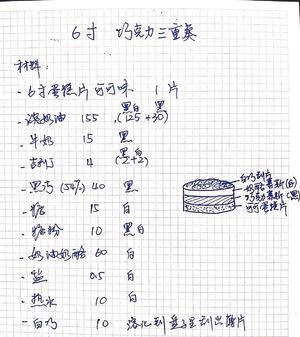 6寸 巧克力三重奏
材料:
- 6寸蛋糕片 可可味 1片
- 淡奶油 155 (黑125 + 白30) 黑
- 牛奶 15 黑
- 吉利丁 4 (黑2+白2)
- 黑巧 (50%) 40 黑
- 糖 15 白
- 糖粉 10 黑白
- 奶油奶酪 60 白
- 盐 0.5 白
- 热水 10 白
- 白巧 10 溶化到盘子里刮出薄片
白巧刮片
奶酪慕斯(白)
巧克力慕斯(黑)
可可蛋糕片